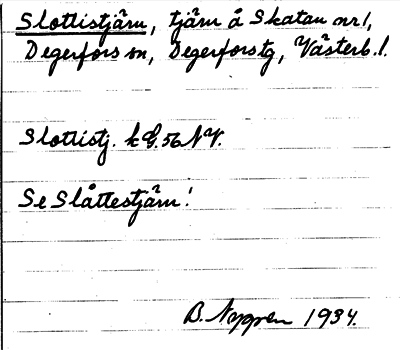 Slottistjärn, tjärn å Skatan nr 1,
Degerfors sn, Degerfors tg, Västerb. l.
Slottistj. k G. 56 NV.
Se Slåttestjärn!
B. Nygren 1934.